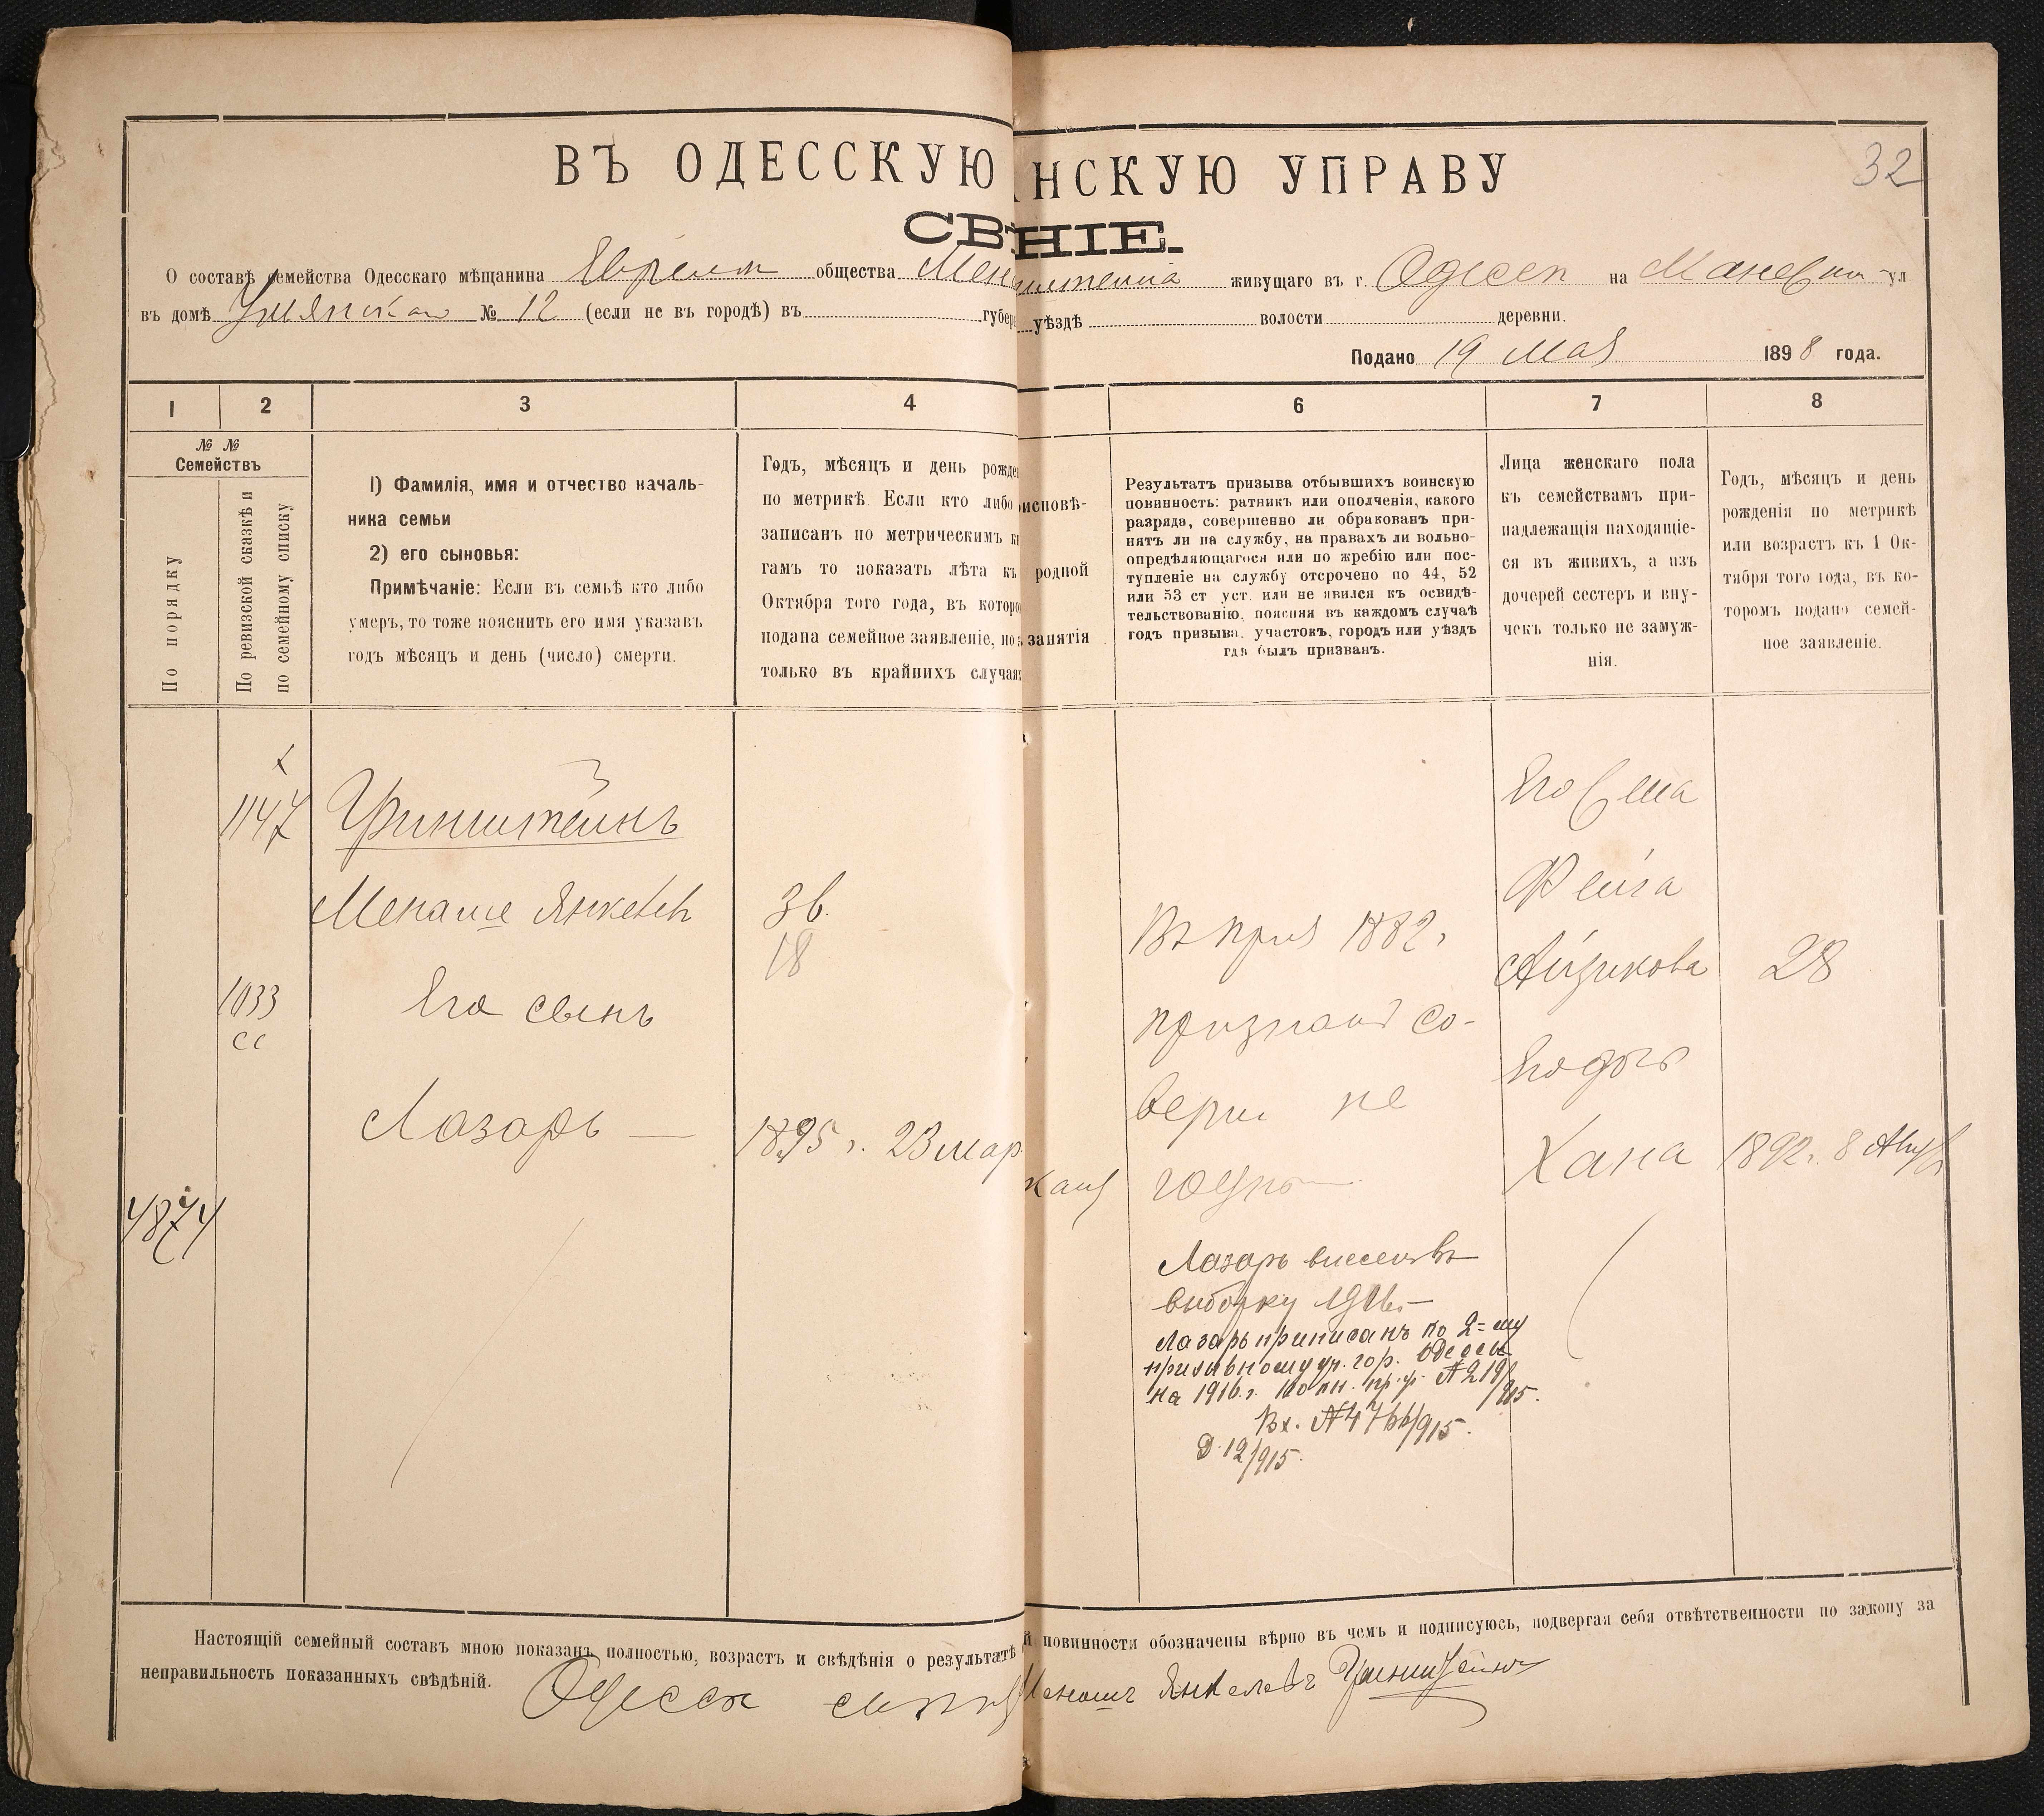 ВЪ ОДЕССКУЮ НСКУЮ УПРАВУ
32
СВ НІЕ.
О составѣ семейства Одесскаго мѣщанина общества живущаго въ г. на ул
въ домѣ № 12 (если не въ городѣ) въ губер уѣздѣ волости деревни.
Подано 19 Мая 1898 года.
1 2 3 4 6 7 8
№ №
Семействъ
По порядку
По ревизской сказкѣ и
по семейному списку
1) Фамилія, имя и отчество началь-
ника семьи
2) его сыновья:
Примѣчаніе: Если въ семьѣ кто либо
умеръ, то тоже пояснить его имя указавъ
годъ мѣсяцъ и день (число) смерти.
Годъ, мѣсяцъ и день рожде
по метрикѣ. Если кто либо
записанъ по метрическимъ кн
гамъ то показать лѣта къ
Октября того года, въ которо
подана семейное заявленіе, но
только въ крайнихъ случаях
исповѣ-
родной
занятія
Результатъ призыва отбывшихъ воинскую
повинность: ратникъ или ополченія, какого
разряда, совершенно ли обракованъ при-
нятъ ли на службу, на правахъ ли вольно-
опредѣляющагося или по жребію или пос-
тупленіе на службу отсрочено по 44, 52
или 53 ст уст. или не явился къ освидѣ-
тельствованію, поясняя въ каждомъ случаѣ
годъ призыва, участокъ, городъ или уѣздъ
гдѣ былъ призванъ.
Лица женскаго пола
къ семействамъ при-
надлежащія находящіе-
ся въ живихъ, а изъ
дочерей сестеръ и вну-
чекъ только не замуж-
нія.
Годъ, мѣсяцъ и день
рожденія по метрикѣ
или возрастъ къ 1 Ок-
тября того года, въ ко-
торомъ подано семей-
ное заявленіе.
1147
Гринштейнъ
Менаше Янкелев
36.
18
1033
сс
Его сынъ
Лазарь —
1895 г. 23 мар
4874
1882г
признан со-
верш не
годн
Лазарь внесенъ въ
выборку 1916г.
Лазарь приписанъ ко 2=му
призывному уч. гор. Одессы
на 1916г.
Вх. №
Д. 12/915.
Его жена
Фейга
Айзикова
28
Его дочь
Хана
1892г. 8 Авгус
Настоящій семейный составъ мною показанъ полностью, возрастъ и свѣдѣнія о результатѣ й повинности обозначены вѣрно въ чемъ и подписуюсь, подвергая себя отвѣтственности по закону за
неправильность показанныхъ свѣдѣній.
Менаше Янкелевъ Гринштейнъ